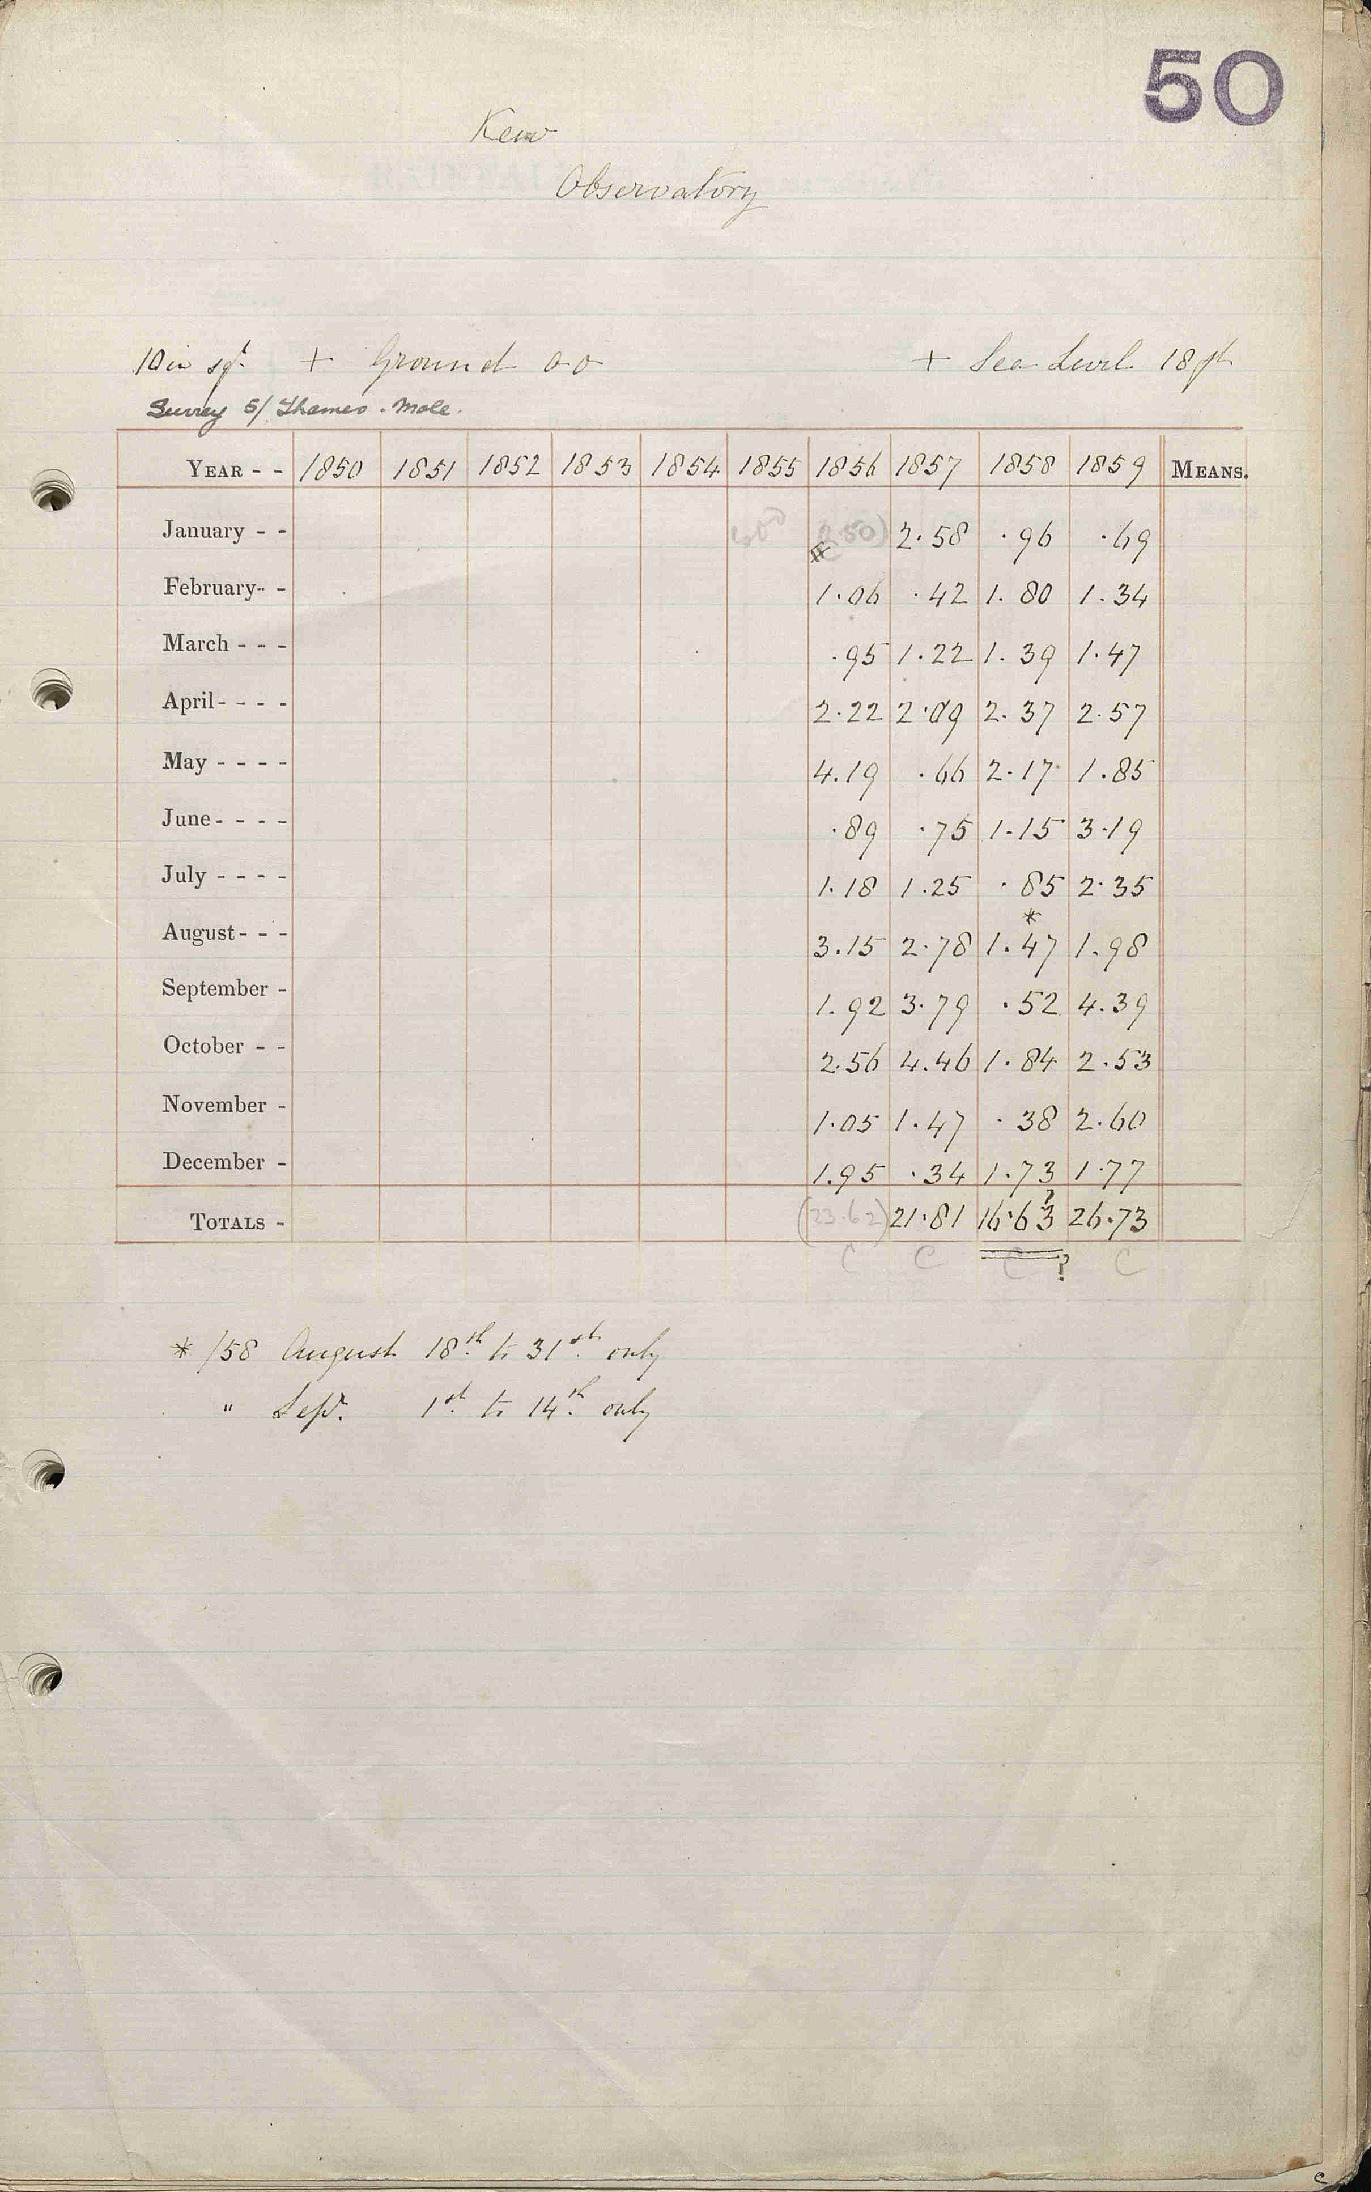 50
Kew
Observatory
10 in sqr. + Ground 0 0 + Sea Level 18 ft
Surrey 5/ Thames. Mole.
YEAR - - 1850 1851 1852 1853 1854 1855 1856 1857 1858 1859 MEANS.
January - - (2.50) 2.58 .96 .69
February - - 1.06 .42 1.80 1.34
March - - - .95 1.22 1.39 1.47
April - - - - 2.22 2.09 2.37 2.57
May - - - - 4.19 .66 2.17 1.85
June - - - - .89 .75 1.15 3.19
July - - - - 1.18 1.25 .85 2.35
*
August - - - 3.15 2.78 1.47 1.98
September - 1.92 3.79 .52 4.39
October - - 2.56 4.46 1.84 2.53
November - 1.05 1.47 .38 2.60
December - 1.95 .34 1.73 1.77
TOTALS - (23.62) 21.81 16.63 ? 26.73
C C C ? C
* /58 August 18th. to 31st. only
" Sepr. 1st. to 14th. only